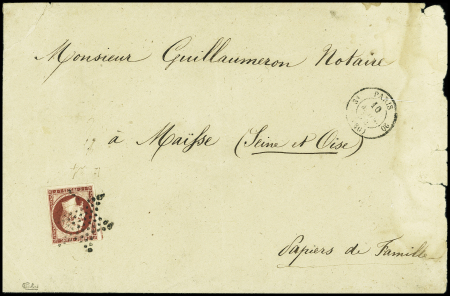 Monsieur Guillaumeron Notaire
PARIS
10
à Maïsse (Seine et Oise)
Papiers de Famille